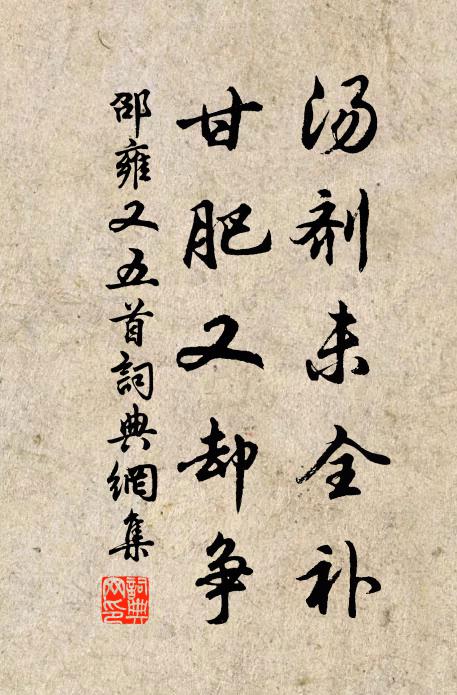 汤剂未全补
甘肥又却争
邵雍又五首詞典網集
詞典网印